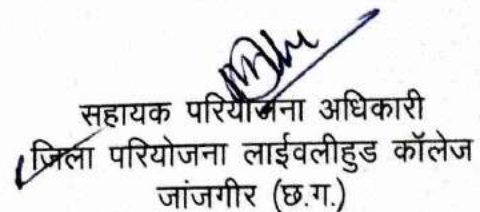 सहायक परियोजना अधिकारी
जिला परियोजना लाईवलीहुड कॉलेज
जांजगीर (छ.ग.)